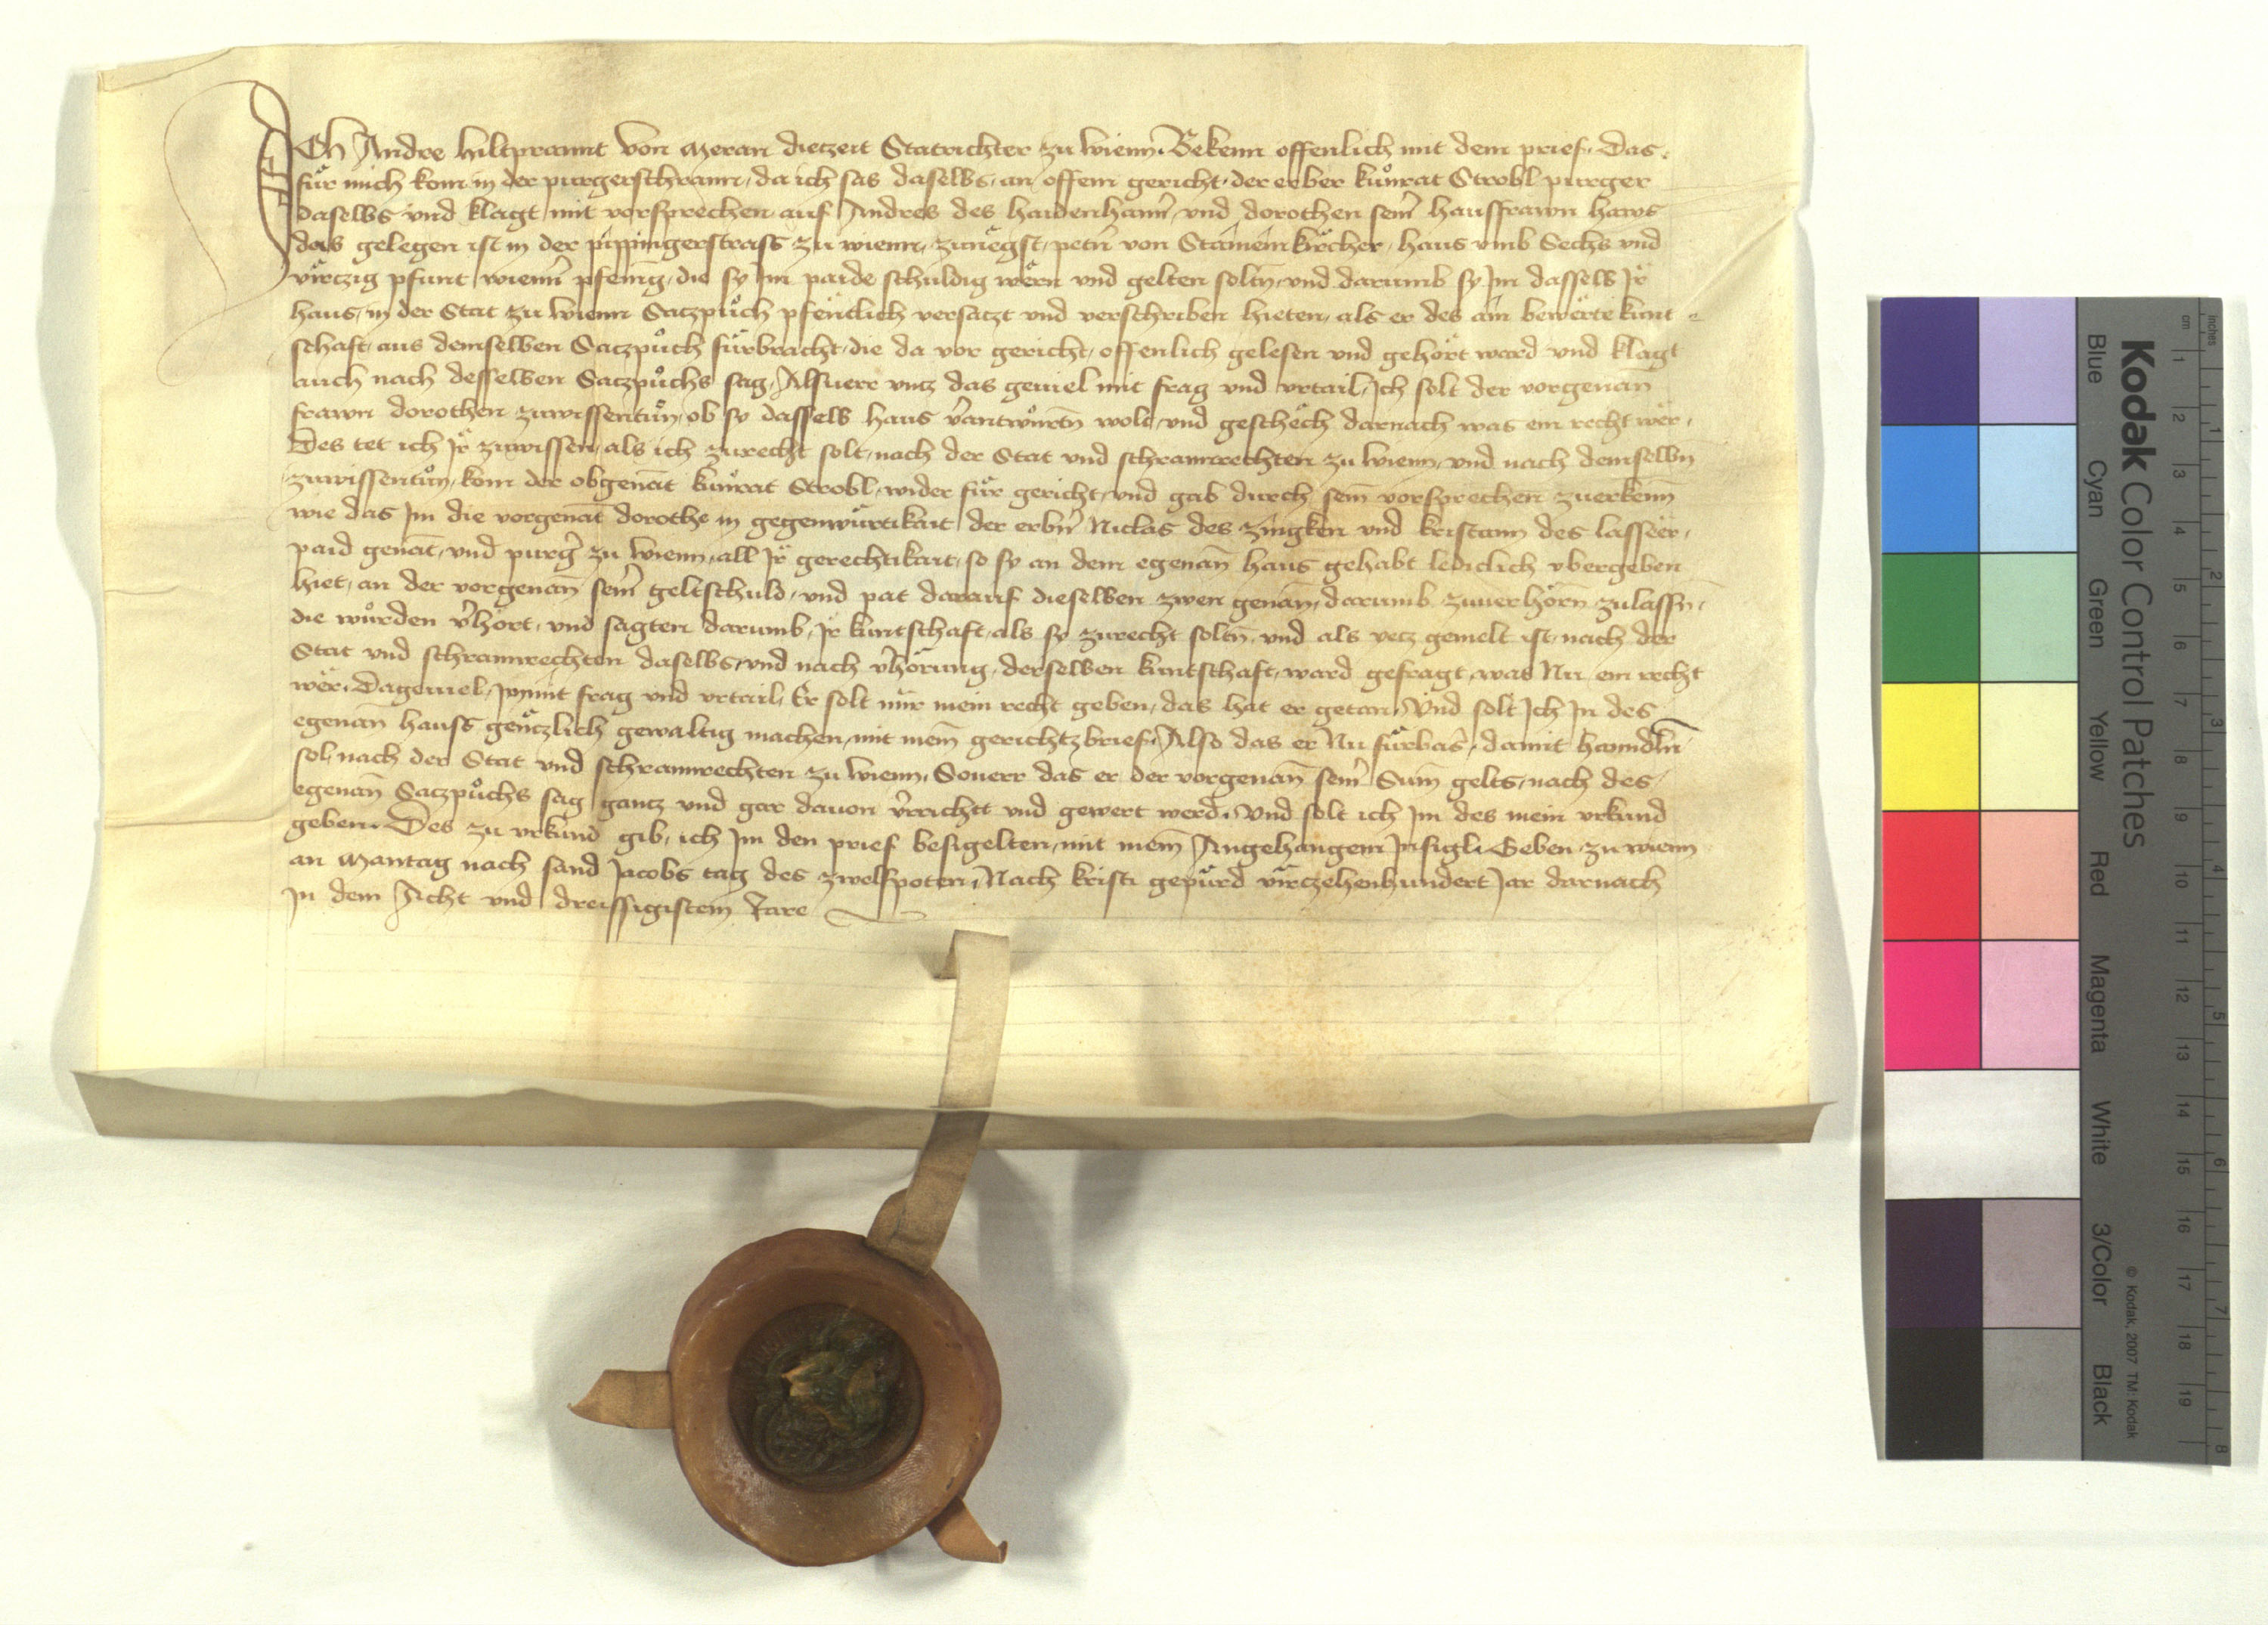 ICh Andre hiltprannt von Meran diezeit Statrichter zu wienn. Bekenn offenlich mit dem prief. Das
für mich kom in der purgerschrann, da ich sas daselbs, an offem gericht, der erber kůnrat Strobl purger
daselbs vnd klagt mit vorsprechen auf Andres des haidenhann vnd dorothen sein hausfrawn haws
das gelegen ist in der pippingerstrass zu wienn, zunegst, petern von Stämeinkircher, haus vmb Sechs vnd
virczig pfunt wienn pfening, die sy Im paide schuldig wern vnd gelten soltn, vnd darumb sy Im dasselb Ir
haus, in der Stat zu wienn Satzpůch pfentlich versatzt vnd verschriben hieten, als er des ain bewerte kunt
schaft, aus demselben Satzpůch fürbracht, die da vor gericht, offenlich gelesen vnd gehört ward vnd klagt
auch nach desselben Satzpůchs sag, Alsuerr vntz das geuiel mit frag vnd vrtail, Ich solt der vorgenan
frawn dorothen zuwissentůn, ob sy dasselb haus vantwurtn wolt, vnd geschech darnach was ein recht wer,
Des tet ich Ir zuwissen, als ich zurecht solt, nach der Stat vnd schrannrechten zu wienn, vnd nach demselbn
zuwissentůn, kom der obgenat kůnrat Strobl, wider für gericht, vnd gab durch sein vorsprechen zuerkenn
wie das Im die vorgenat dorothe in gegenwurtikait der erbn Niclas des zingken vnd kristann des lasseer,
paid genat, vnd purg zu wienn, all Ir gerechtikait, so sy an dem egenan haus gehabt lediclich vbergeben
hiet, an der vorgenan sein geltschuld, vnd pat darauf dieselben zwen genan, darumb zuuerhörn zulassn,
die wurden vhört, vnd sagten darumb, Ir kuntschaft, als sy zurecht soltn, vnd als yetz gemelt ist, nach der
Stat vnd schrannrechten daselbs, vnd nach vhörung, derselben kuntschaft, ward gefragt, was Nu ein recht
wer, Dageuiel, Im mit frag vnd vrtail, Er solt mir mein recht geben, das hat er getan, Vnd solt Ich In des
egenan hauss genczlich gewaltig machen, mit mein gerichtzbrief, Also das er Nu fürbas, damit hanndln
sol, nach der Stat vnd schrannrechten zu wienn, Souerr das er der vorgenan sein Sum gelts, nach des
egenan Satzpůchs sag gantz vnd gar dauon vrichtt vnd gewert werd, Vnd solt ich Im des mein vrkund
geben. Des zu vrkund gib, ich Im den prief besigelten, mit mein Angehangem Insigl. Geben zu wienn
an Mantag nach sand Jacobs tag des zwelfpoten, Nach kristi gepurd virczehenhundert Jar darnach
In dem Acht vnd dreissigistem Jare
Kodak Color Control Patches
Blue Cyan Green Yellow Red Magenta White 3/Color Black
© Kodak, 2007 TM: Kodak
inches 1 2 3 4 5 6 7 8
cm 1 2 3 4 5 6 7 8 9 10 11 12 13 14 15 16 17 18 19